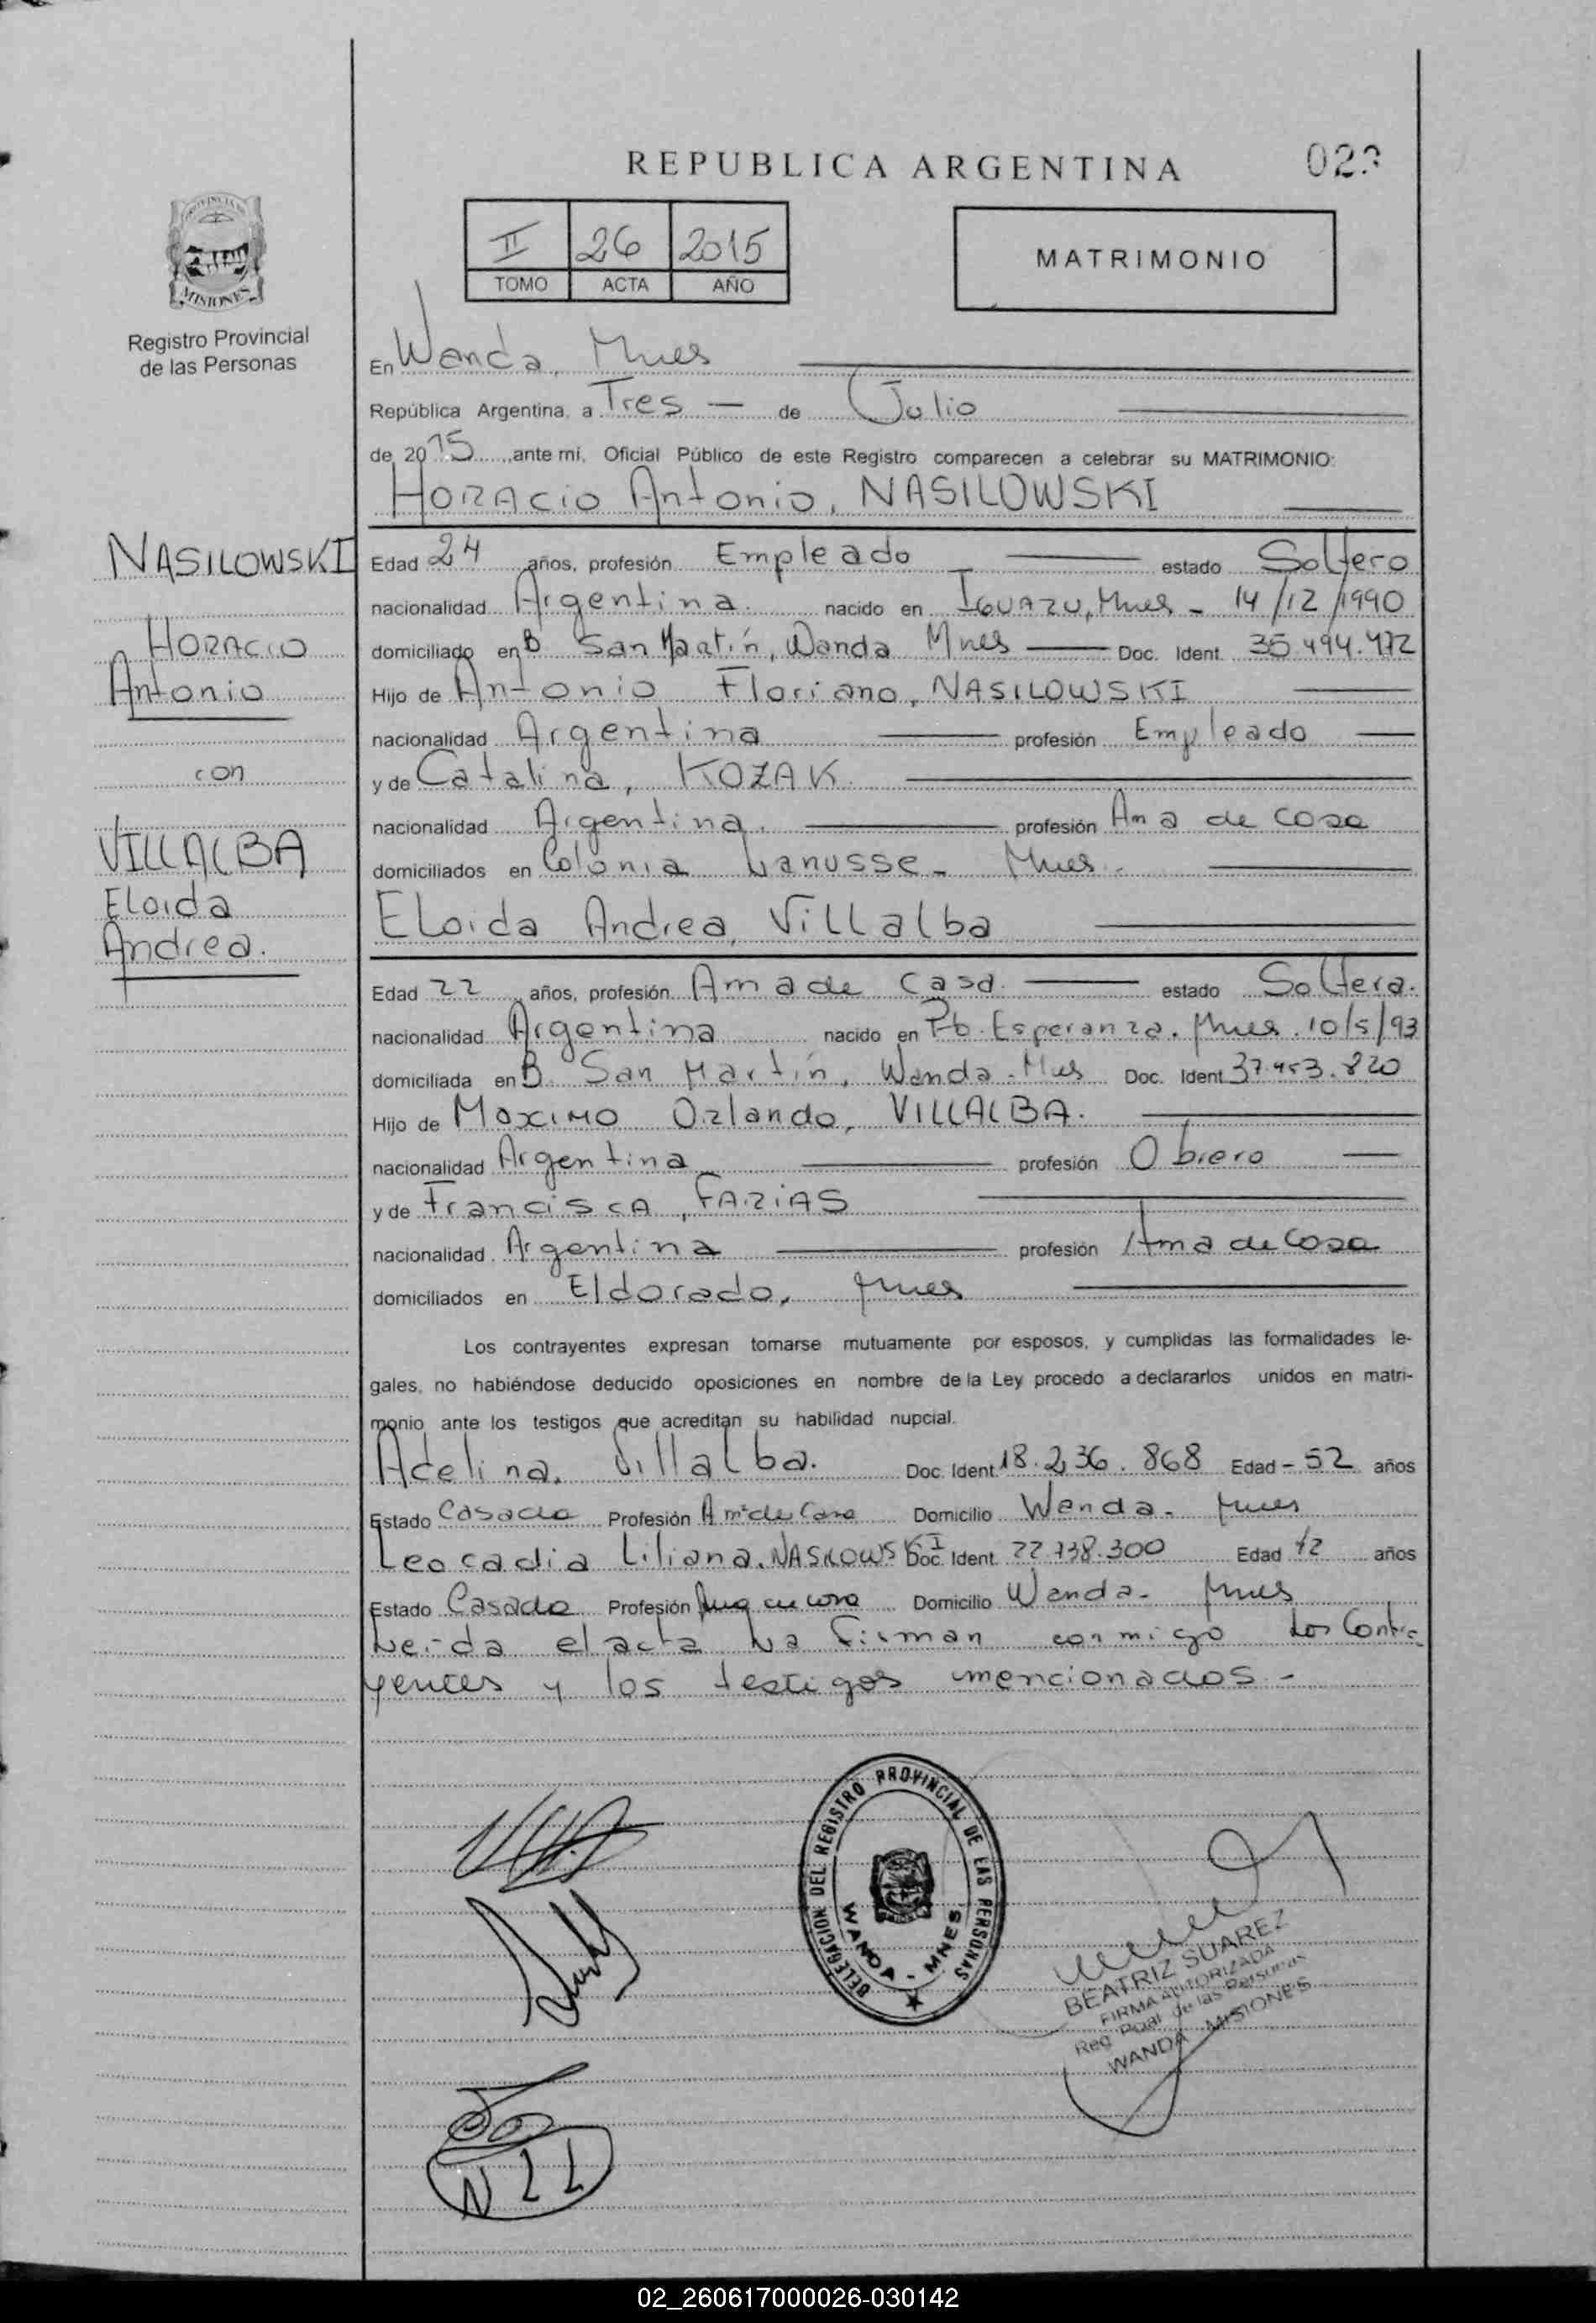 REPUBLICA ARGENTINA
II 26 2015
TOMO ACTA AÑO
MATRIMONIO
PROVINCIA DE
MISIONES
Registro Provincial
de las Personas
En Wanda, Mnes
República Argentina, a Tres — de Julio
de 2015, ante mí, Oficial Público de este Registro comparecen a celebrar su MATRIMONIO:
HORACIO Antonio, NASILOWSKI
NASILOWSKI
HORACIO
Antonio
con
VILLALBA
Eloida
Andrea.
Edad 24 años, profesión Empleado estado Soltero
nacionalidad Argentina. nacido en IGUAZU, Mnes - 14/12/1990
domiciliado en B San Martín, Wanda Mnes Doc. Ident. 35.494.472
Hijo de Antonio Floriano, NASILOWSKI
nacionalidad Argentina profesión Empleado
y de Catalina, KOZAK.
nacionalidad Argentina. profesión Ama de casa
domiciliados en Colonia Lanusse - Mnes.
Eloida Andrea, Villalba
Edad 22 años, profesión Ama de casa. estado Soltera.
nacionalidad Argentina nacido en Pto. Esperanza. Mnes. 10/5/93
domiciliada en B. San Martín, Wanda - Mnes Doc. Ident. 37.453.820
Hijo de MAXIMO Orlando, VILLALBA.
nacionalidad Argentina profesión Obrero
y de Francisca, FARIAS
nacionalidad Argentina profesión Ama de Casa
domiciliados en Eldorado, Mnes
Los contrayentes expresan tomarse mutuamente por esposos, y cumplidas las formalidades le-
gales, no habiéndose deducido oposiciones en nombre de la Ley procedo a declararlos unidos en matri-
monio ante los testigos que acreditan su habilidad nupcial.
Adelina, Villalba. Doc. Ident. 18.236.868 Edad - 52 años
Estado Casada Profesión Ama de Casa Domicilio Wanda - Mnes
Leocadia Liliana, NASILOWSKI Doc. Ident. 22.738.300 Edad 42 años
Estado Casada Profesión Ama de casa Domicilio Wanda - Mnes
Leída el acta La firman conmigo Los Contra
yentes y los testigos mencionados -
DELEGACION DEL REGISTRO PROVINCIAL DE LAS PERSONAS
WANDA - MNES
BEATRIZ SUAREZ
FIRMA AUTORIZADA
Reg. Pcial. de las Personas
WANDA - MISIONES
NLL
02_260617000026-030142